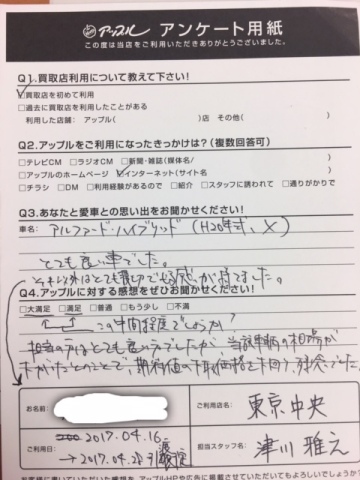 アップル アンケート用紙
この度は当店をご利用いただきありがとうございました。
Q1.買取店利用について教えて下さい!
☑買取店を初めて利用
□過去に買取店を利用したことがある
利用した店舗: アップル( )店 その他( )
Q2.アップルをご利用になったきっかけは?(複数回答可)
□テレビCM □ラジオCM □新聞・雑誌(媒体名/ )
□アップルのホームページ ☑インターネット(サイト名 )
□チラシ □DM □利用経験があるので □紹介 □スタッフに誘われて □通りがかりで
Q3.あなたと愛車との思い出をお聞かせください!
車名: アルファードハイブリッド (H20年式、X)
とても良い車でした。
それ以外はとても親切で好感が持てました。
Q4.アップルに対する感想をぜひお聞かせください!
□大満足 □満足 □普通 □もう少し □不満
この中間程度でしょうか?
担当の方はとても良い方でしたが、当該車輌の相場が
下がったとのことで、期待値の下取価格を下回り、残念でした
お名前:
ご利用店名: 東京中央
ご利用日: 2017.04.16
→2017.04.21引
担当スタッフ名: 津川雅之
お客様に書いていただいた感想を、アップルHPや広告に掲載させていただいてもよろしいでしょうか